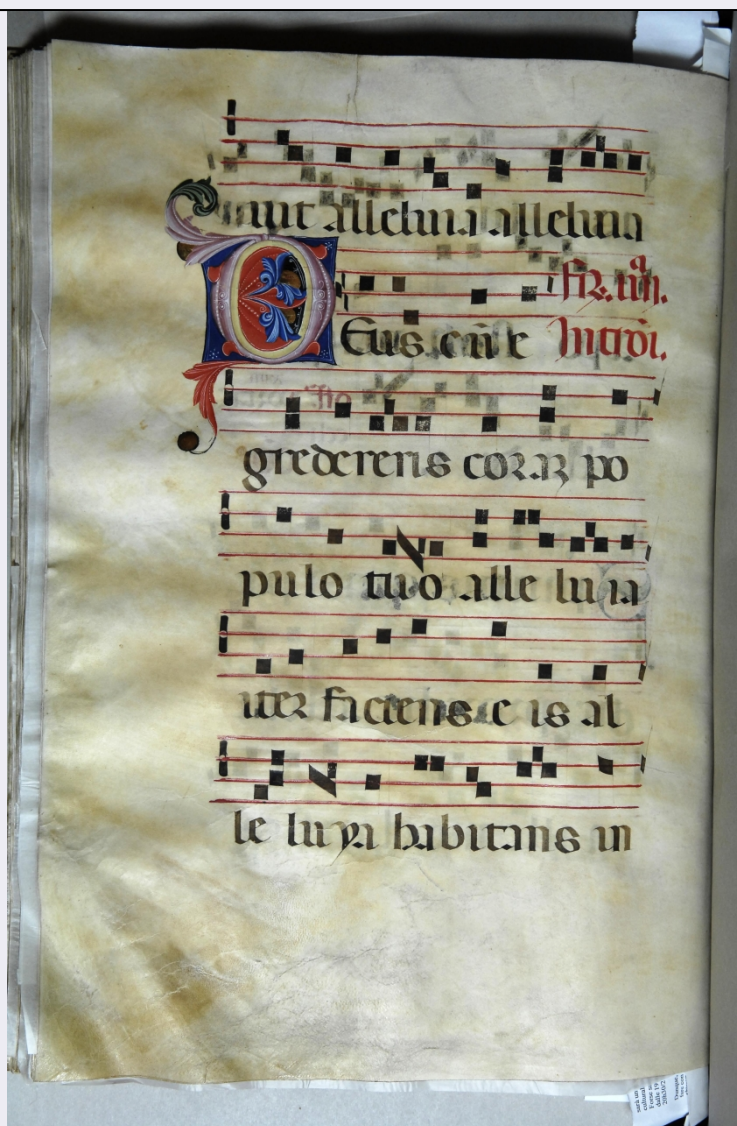 unt alleluia alleluia
fr. iiij.
DEus cū e Introi.
grederens coraz po
pulo tuo alle luia
iter faciens e is al
le luya habitans in